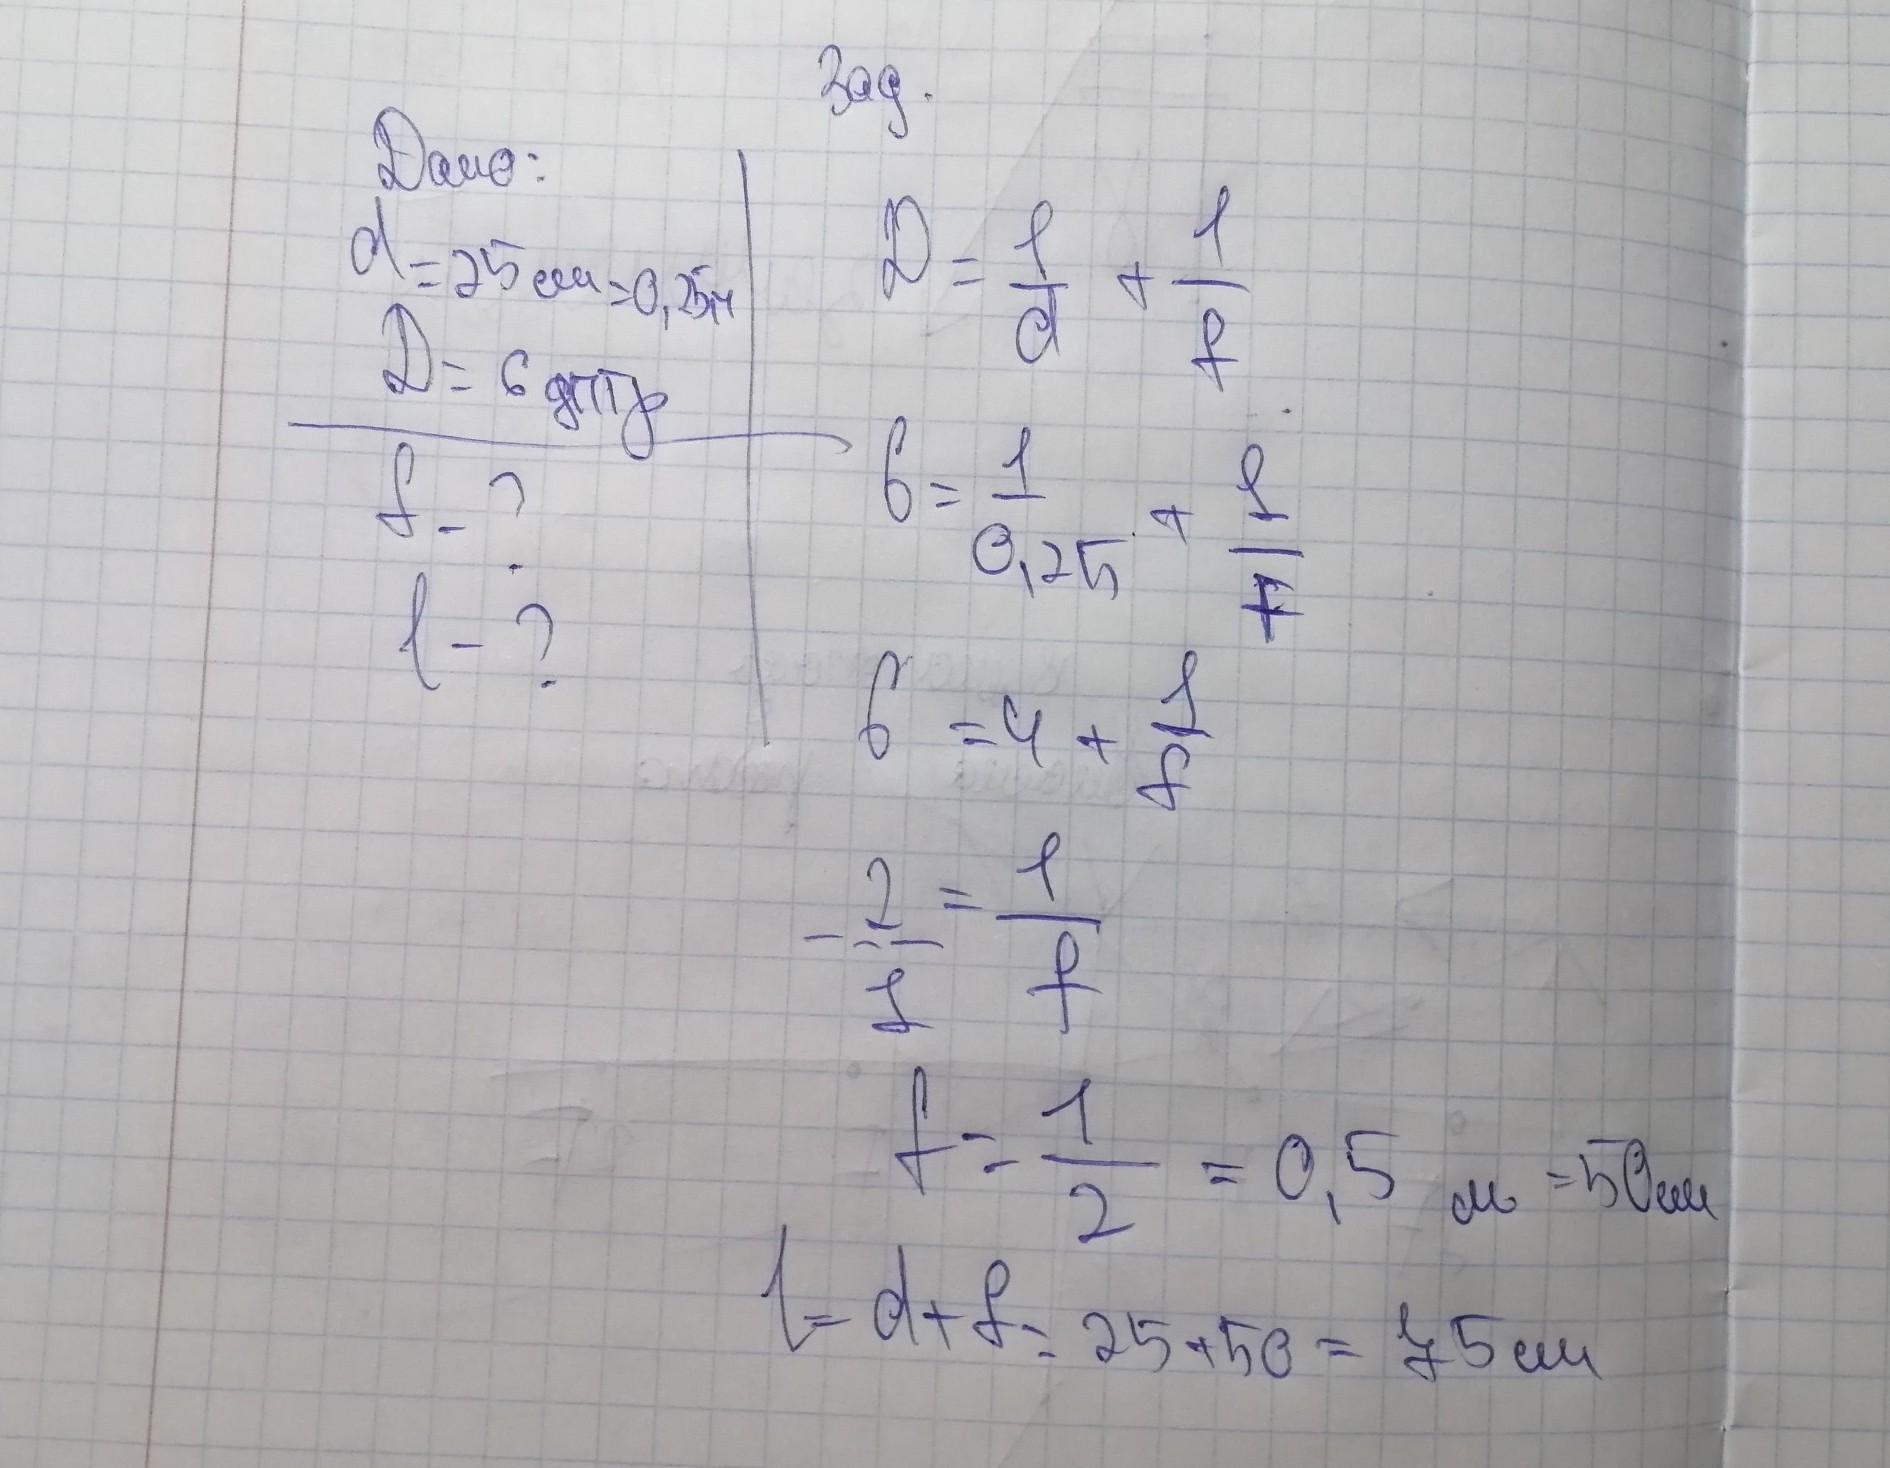 Зад.
Дано:
d = 25 см = 0,25 м
D = 6 дптр
f - ?
l - ?
D = 1/d + 1/f
6 = 1/0,25 + 1/f
6 = 4 + 1/f
2/1 = 1/f
f = 1/2 = 0,5 м = 50 см
l = d + f = 25 + 50 = 75 см